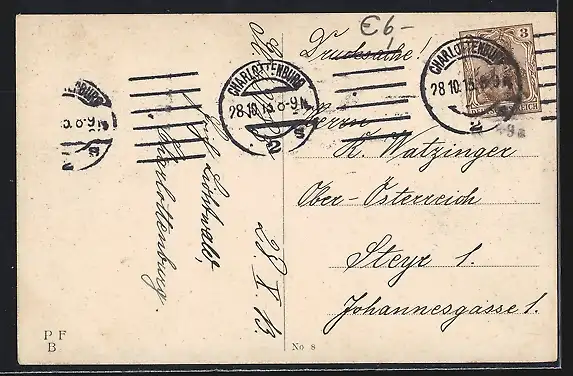 €6,-
Drucksache!
3
CHARLOTTENBURG
28.10.13.8-9N
2 s
CHARLOTTENBURG
28.10.13.8-9N
2 s
Herrn
K. Watzinger
Ober-Österreich
Steyr 1.
Johannesgasse 1.
Charlottenburg.
28.X.13.
P F
B
No 8